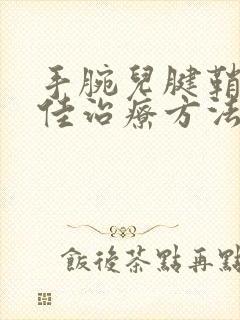 手腕兒腱鞘
佳治療方法
飯後茶點再點